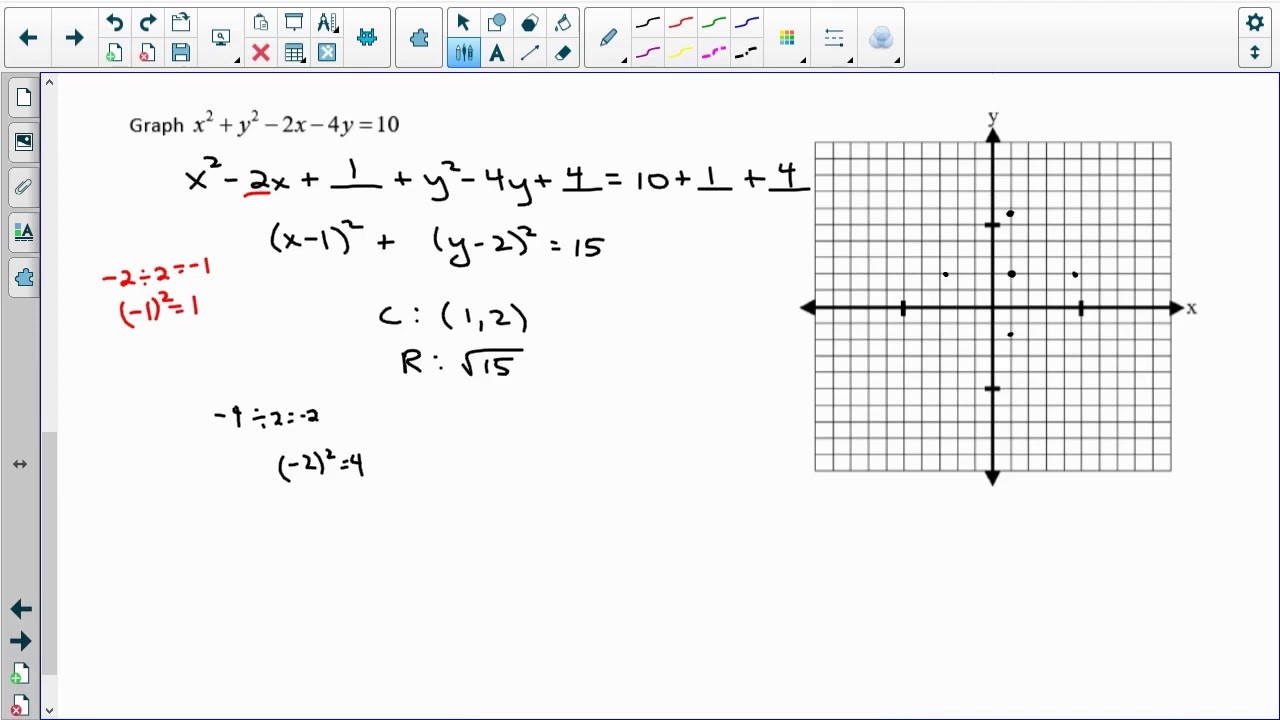 Graph x² + y² − 2x − 4y = 10
x² - 2x + 1 + y² - 4y + 4 = 10 + 1 + 4
(x-1)² + (y-2)² = 15
-2÷2=-1
(-1)²=1
C: (1,2)
R: √15
-4÷2=-2
(-2)²=4
y
x